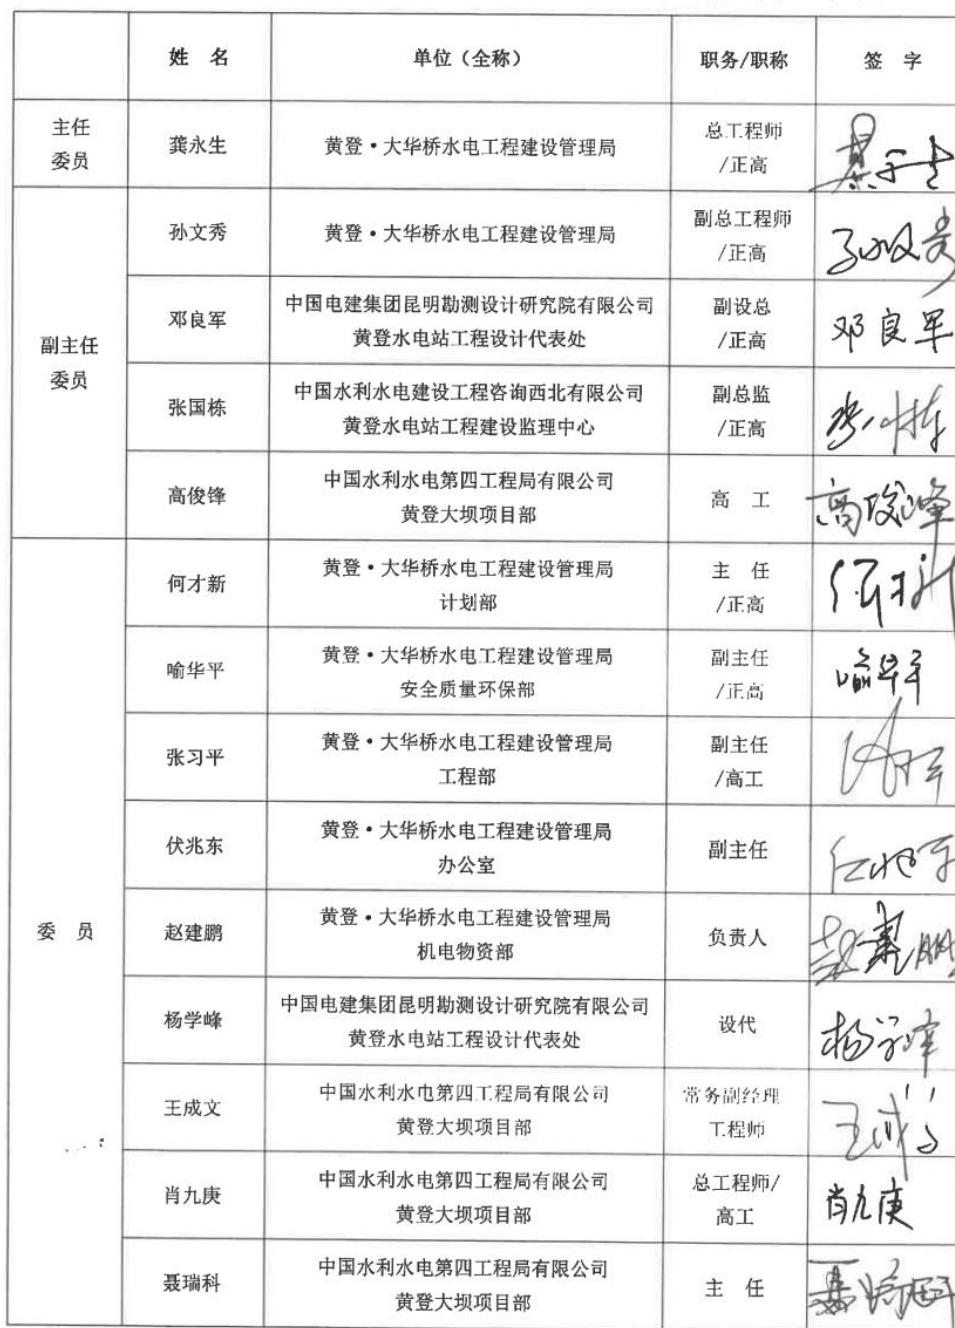 姓 名 单位（全称） 职务/职称 签 字
主任
委员
龚永生 黄登·大华桥水电工程建设管理局 总工程师
/正高
副主任
委员
孙文秀 黄登·大华桥水电工程建设管理局 副总工程师
/正高
孙文秀
邓良军 中国电建集团昆明勘测设计研究院有限公司
黄登水电站工程设计代表处
副设总
/正高
邓良军
张国栋 中国水利水电建设工程咨询西北有限公司
黄登水电站工程建设监理中心
副总监
/正高
高俊锋 中国水利水电第四工程局有限公司
黄登大坝项目部
高 工
委 员
何才新 黄登·大华桥水电工程建设管理局
计划部
主 任
/正高
何才新
喻华平 黄登·大华桥水电工程建设管理局
安全质量环保部
副主任
/正高
喻华平
张习平 黄登·大华桥水电工程建设管理局
工程部
副主任
/高工
伏兆东 黄登·大华桥水电工程建设管理局
办公室
副主任
赵建鹏 黄登·大华桥水电工程建设管理局
机电物资部
负责人
赵建鹏
杨学峰 中国电建集团昆明勘测设计研究院有限公司
黄登水电站工程设计代表处
设代
杨学峰
王成文 中国水利水电第四工程局有限公司
黄登大坝项目部
常务副经理
工程师
肖九庚 中国水利水电第四工程局有限公司
黄登大坝项目部
总工程师/
高工
肖九庚
聂瑞科 中国水利水电第四工程局有限公司
黄登大坝项目部
主 任
聂瑞科